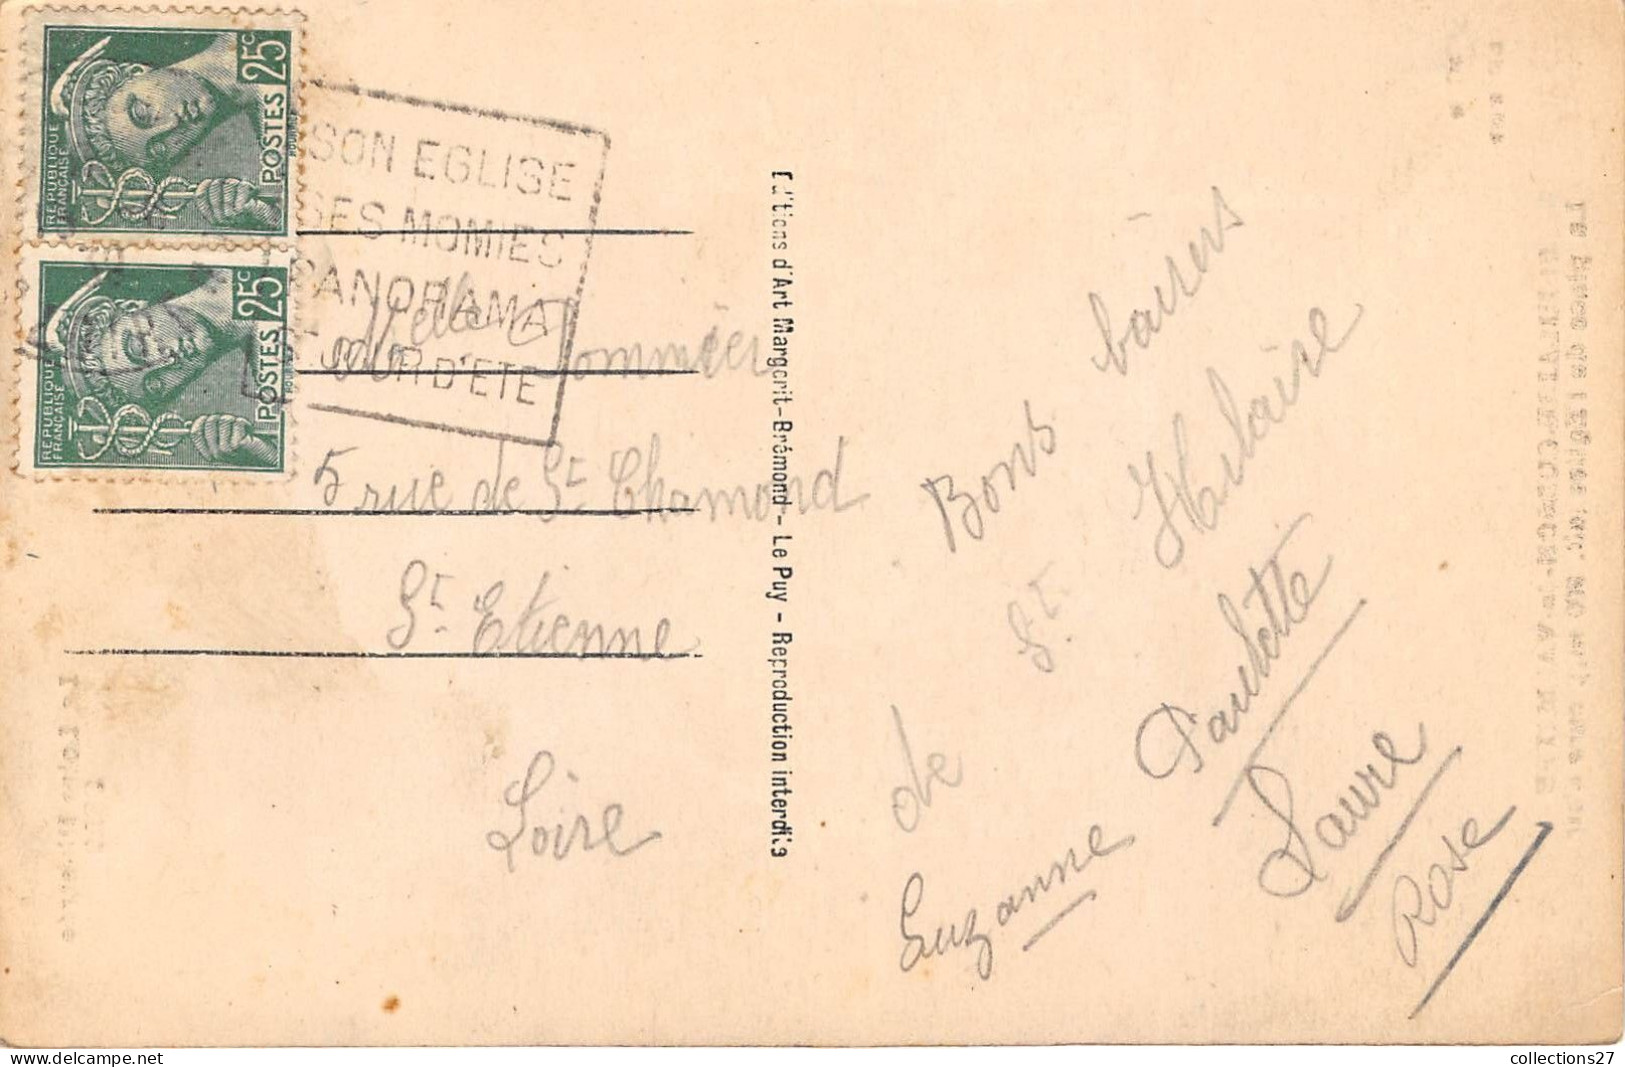 25c
POSTES
RÉPUBLIQUE
FRANÇAISE
25c
POSTES
RÉPUBLIQUE
FRANÇAISE
SON EGLISE
SES MOMIES
PANORAMA
SEJOUR D'ETE
Melle Sommier
5 rue de St Chamond
St Etienne
Loire
Editions d'Art Margerit-Brémond - Le Puy - Reproduction interdite
Bons baisers
de St Hilaire
Suzanne
Paulette
Laure
Rose
collections27